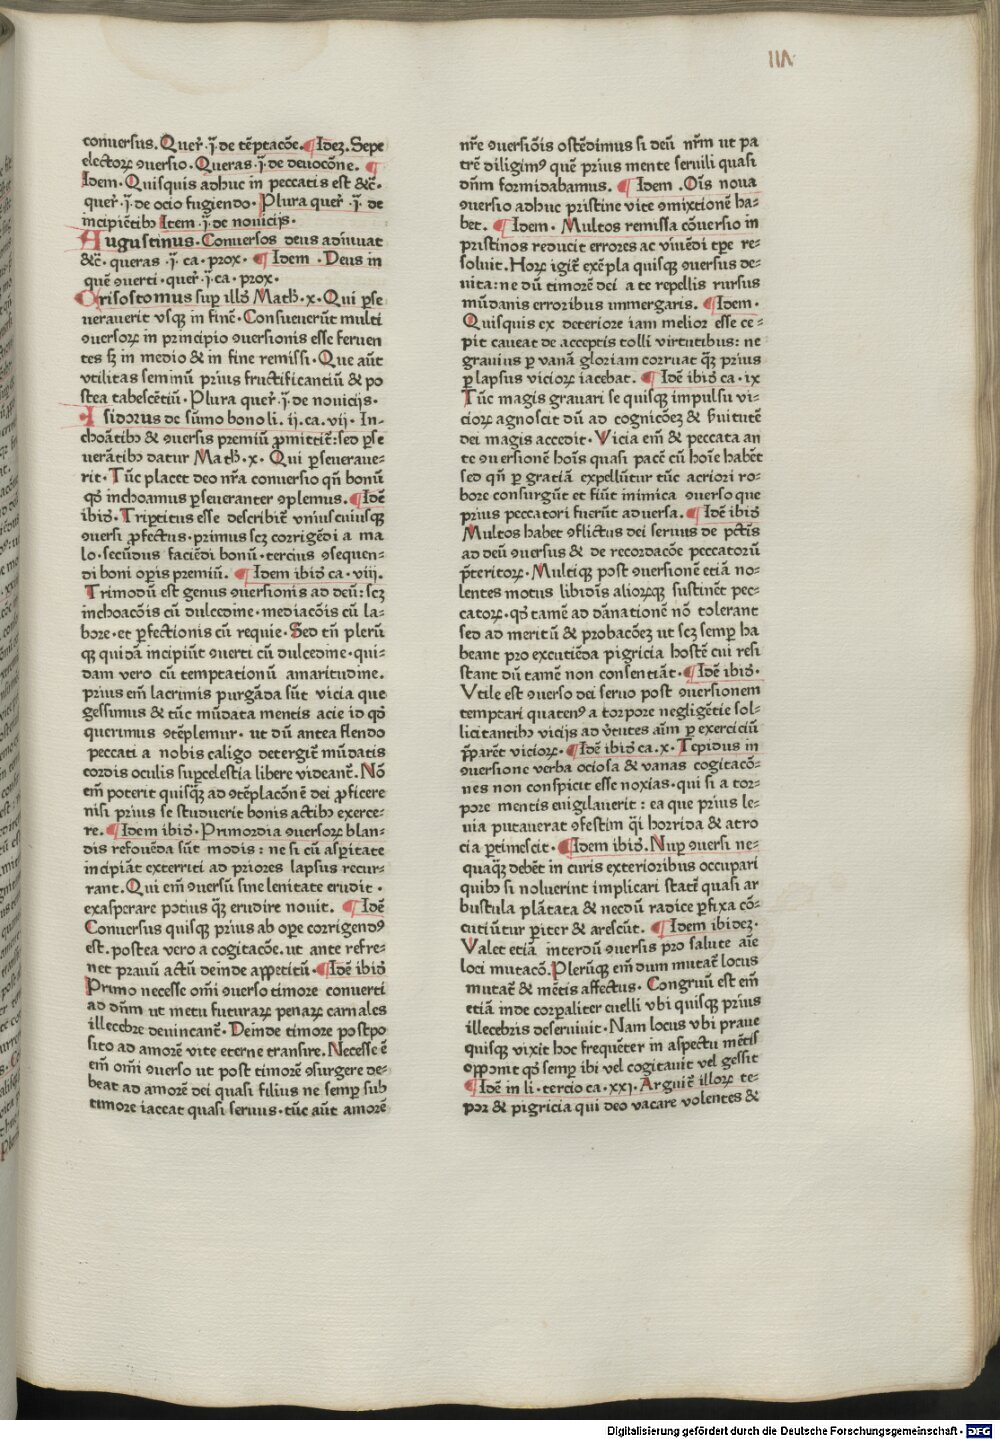 IIΛ
conuersus. Quer̄ .ī. de tēptacōe. ¶ Idez. Sepe
electoꝝ ꝯuersio. Queras .ī. de deuocōne. ¶
Idem. Quisquis adhuc in peccatis est &c̄.
quer̄ .ī. de ocio fugiendo. Plura quer̄ .ī. de
incipiētibꝫ Item .ī. de nouicijs.
Augustinus. Conuersos deus adiuuat
&c̄. queras .ī. ca. prox. ¶ Idem. Deus in
quē ꝯuerti. quer̄ .ī. ca. prox.
Crisostomus suꝑ illd Math. x. Qui ꝑse
uerauerit vsqꝫ in finē. Consueuerūt multi
ꝯuersoꝝ in principio ꝯuersionis esse feruen
tes sꝫ in medio & in fine remissi. Que aūt
vtilitas seminū prius fructificantiū & po
stea tabescētiū. Plura quer̄ .ī. de nouicijs.
Isidorus de sūmo bono li. ii. ca. vii. In-
choātibꝫ & ꝯuersis premiū ꝓmittit̄: sed ꝑse
uerātibꝫ datur Math. x. Qui ꝑseueraue-
rit. Tūc placet deo nr̄a conuersio qn̄ bonū
qd̄ inchoamus ꝑseueranter ꝯplemus. ¶ Idē
ibid̄. Tripertitus esse describit̄ vniuscuiusqꝫ
ꝯuersi ꝓfectus. primus scꝫ corrigēdi a ma
lo. secūdus faciēdi bonū. tercius ꝯsequen-
di boni oꝑis premiū. ¶ Idem ibid̄ ca. viii.
Trimodū est genus ꝯuersionis ad deū: scꝫ
inchoacōis cū dulcedine. mediacōis cū la-
bore. et ꝑfectionis cū requie. Sed tn̄ plerū
qꝫ quidā incipiūt ꝯuerti cū dulcedine. qui-
dam vero cū temptationū amaritudine.
prius em̄ lacrimis purgāda sūt vicia que
gessimus & tūc mūdata mentis acie id qd̄
querimus ꝯtēplemur. ut dū antea flendo
peccati a nobis caligo detergit̄ mūdatis
cordis oculis suꝑcelestia libere videant̄. Nō
em̄ poterit quisqꝫ̄ ad ꝯtēplacōnē dei ꝓficere
nisi prius se studuerit bonis actibꝫ exerce-
re. ¶ Idem ibid̄. Primordia ꝯuersoꝝ blan-
dis refouēda sūt modis: ne si cū asꝑitate
incipiāt exterriti ad priores lapsus recur-
rant. Qui em̄ ꝯuersū sine lenitate erudit.
exasperare pocius qꝫ̄ erudire nouit. ¶ Idē
Conuersus quisqꝫ prius ab oꝑe corrigendꝰ
est. postea vero a cogitacōe. ut ante refre-
net prauū actū deinde appetitū. ¶ Idē ibid̄
Primo necesse om̄i ꝯuerso timore conuerti
ad dn̄m ut metu futuraꝝ penaꝝ carnales
illecebre deuincant̄. Deinde timore postpo
sito ad amorē vite eterne transire. Necesse ē
em̄ om̄i ꝯuerso ut post timorē ꝯsurgere de-
beat ad amorē dei quasi filius ne semꝑ sub
timore iaceat quasi seruus. tūc aūt amorē
nr̄e ꝯuersiōis ostēdimus si deū nr̄m ut pa
trē diligimꝰ quē prius mente seruili quasi
dn̄m formidabamus. ¶ Idem. Ois̄ noua
ꝯuersio adhuc pristine vite ꝯmixtionē ha-
bet. ¶ Idem. Multos remissa cōuersio in
pristinos reducit errores ac viuēdi tꝑe re-
soluit. Hoꝝ igit̄ exēpla quisqꝫ ꝯuersus de-
uita: ne dū timorē dei a te repellis rursus
mūdanis erroribus immergaris. ¶ Idem.
Quisquis ex deteriore iam melior esse ce-
pit caueat de acceptis tolli virtutibus: ne
grauius ꝑ vanā gloriam corruat qꝫ̄ prius
ꝑ lapsus vicioꝝ iacebat. ¶ Idē ibid̄ ca. ix
Tūc magis grauari se quisqꝫ impulsu vi-
cioꝝ agnoscit dū ad cognicōez & ẜuitutē
dei magis accedit. Vicia em̄ & peccata an
te ꝯuersionē hoīs quasi pacē cū hoīe habēt
sed qn̄ ꝑ gratiā expellūtur tūc acriori ro-
bore consurgūt et fiūt inimica ꝯuerso que
prius peccatori fuerūt aduersa. ¶ Idē ibid̄
Multos habet ꝯflictus dei seruus de pctīs
ad deū ꝯuersus & de recordacōe peccatorū
p̄teritoꝝ. Multiqꝫ post ꝯuersionē etiā no-
lentes motus libidīs alioꝝqꝫ sustinēt pec-
catoꝝ. qd̄ tamē ad dānationē nō tolerant
sed ad meritū & probacōez ut scꝫ semꝑ ha
beant pro excutiēda pigricia hostē cui resi
stant dū tamē non consentiāt. ¶ Idē ibid̄.
Vtile est ꝯuerso dei seruo post ꝯuersionem
temptari quatenꝰ a torpore negligētie sol-
licitantibꝫ vicijs ad v̄tutes aīm ꝑ exerciciū
p̄parēt vicioꝝ. ¶ Idē ibid̄ ca. x. Tepidus in
ꝯuersione verba ociosa & vanas cogitacō-
nes non conspicit esse noxias. qui si a tor-
pore mentis euigilauerit: ea que prius le-
uia putauerat ꝯfestim q̄i horrida & atro
cia ꝑtimescit. ¶ Idem ibid̄. Nuꝑ ꝯuersi ne-
quaqꝫ̄ debēt in curis exterioribus occupari
quibꝫ si noluerint implicari statī quasi ar
bustula plātata & necdū radice ꝑfixa cō-
cutiūtur ꝑiter & arescūt. ¶ Idem ibidez.
Valet etiā interdū ꝯuersis pro salute aīe
loci mutacō. Plerūqꝫ em̄ dum mutat̄ locus
mutat̄ & mētis affectus. Congruū est em̄
etiā inde corꝑaliter euelli vbi quisqꝫ prius
illecebris deseruiuit. Nam locus vbi praue
quisqꝫ vixit hoc frequēter in aspectu mētis
opponit qd̄ semꝑ ibi vel cogitauit vel gessit
¶ Idē in li. tercio ca. xxi. Arguit̄ illoꝝ te-
por & pigricia qui deo vacare volentes &
Digitalisierung gefördert durch die Deutsche Forschungsgemeinschaft - DFG